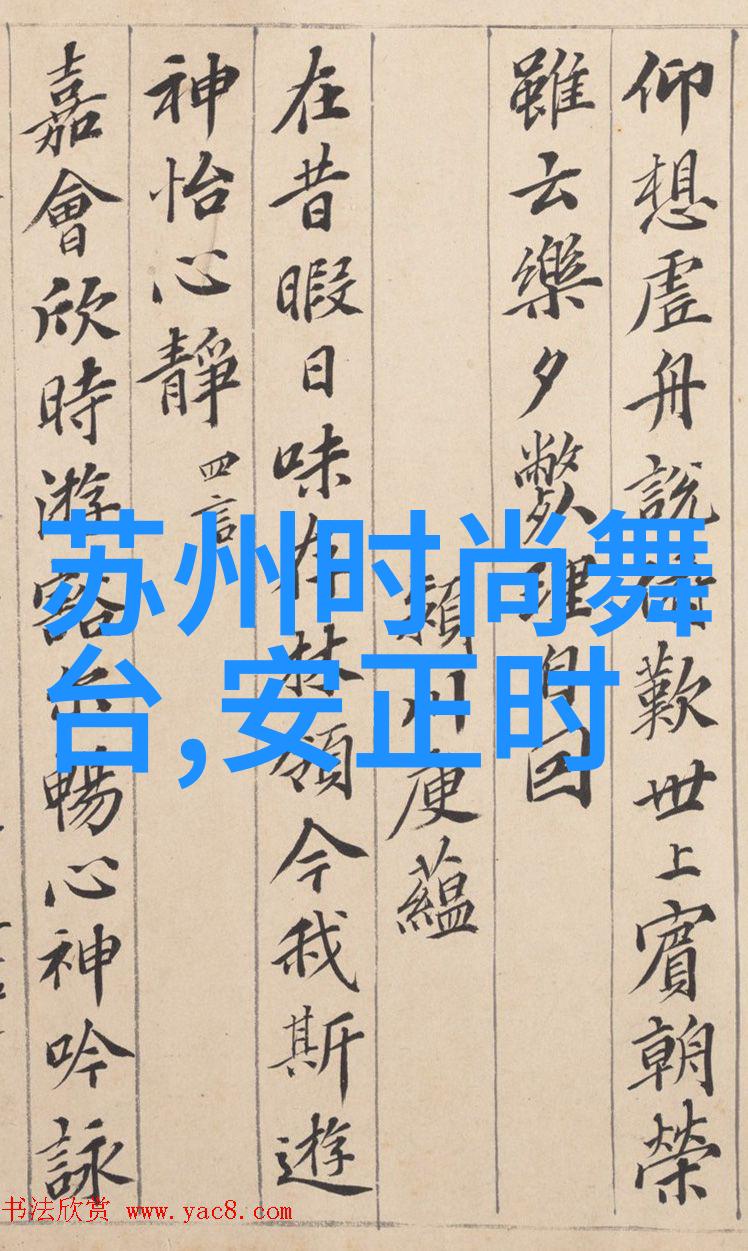 仰想虛舟說俯歎世上賓朝榮
雖云樂夕斃理自回
潁川庾蘊
在昔暇日味存林領今我斯遊
神怡心靜 四言
嘉會欣時游豁尔暢心神吟詠
苏州时尚舞
台,安正时
书法欣赏 www.yac8.com